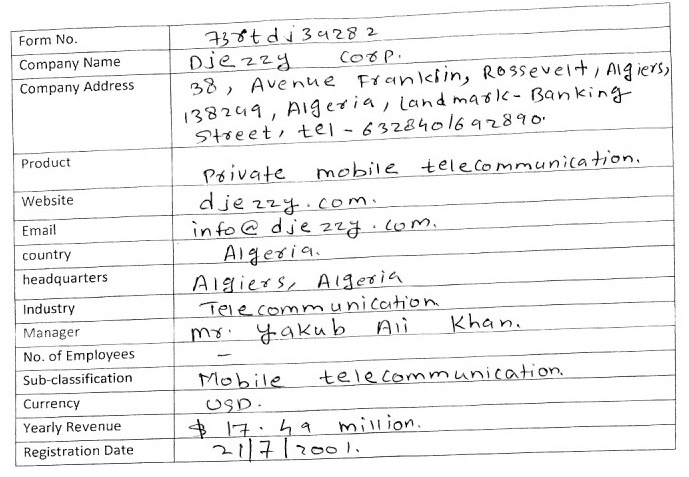 Form No. 738tdj39282
Company Name Djezzy Corp.
Company Address 38, Avenue Franklin, Rossevelt, Algiers,
138249, Algeria, Landmark - Banking
Street, tel - 6328401692890.
Product Private mobile telecommunication.
Website djezzy.com.
Email info@djezzy.com.
country Algeria.
headquarters Algiers, Algeria
Industry Telecommunication
Manager mr. Yakub Ali Khan.
No. of Employees –
Sub-classification Mobile telecommunication.
Currency USD.
Yearly Revenue $ 17.49 million.
Registration Date 21/7/2001.